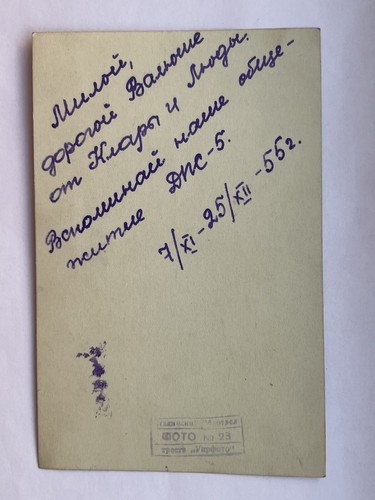 Милой,
дорогой Валюше
от Клары и Люды.
Вспоминай наше обще-
житие ДПС-5.
7/XI-25/XII-55г.
ФОТО № 23
треста „Укрфото"